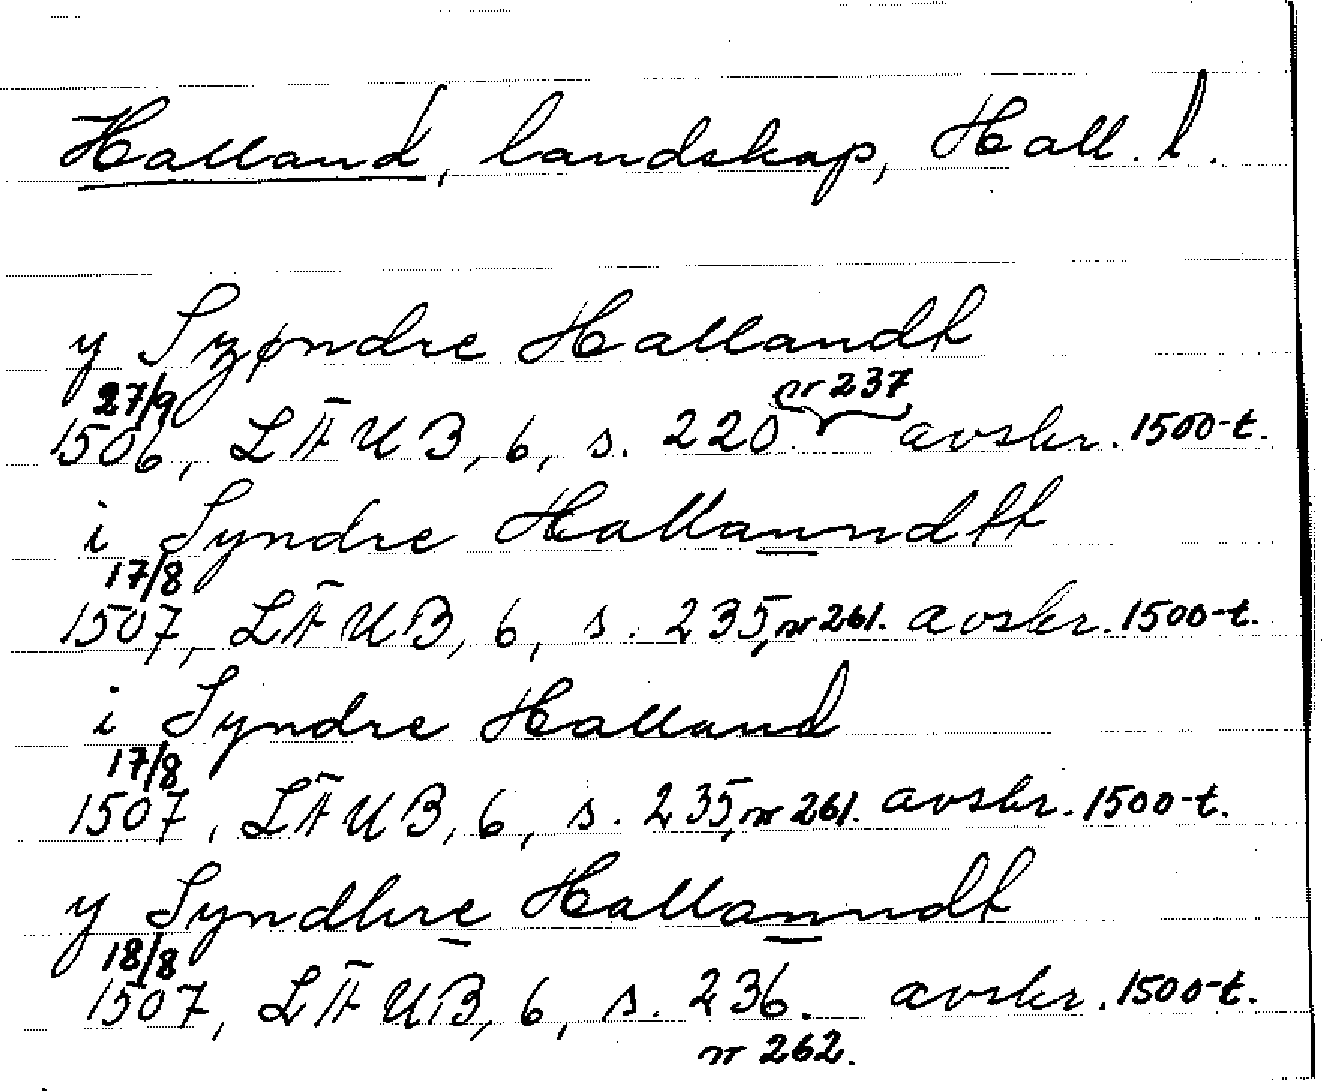 Halland, landskap, Hall. l.
y Szøndre Hallandt
27/9
1506, LÄUB, 6, s. 220. nr 237 avskr. 1500-t.
i Syndre Hallanndtt
17/8
1507, LÄUB, 6, s. 235, nr 261. avskr. 1500-t.
i Syndre Halland
17/8
1507, LÄUB, 6, s. 235, nr 261. avskr. 1500-t.
y Syndhre Hallanndt
18/8
1507, LÄUB, 6, s. 236. avskr. 1500-t.
nr 262.